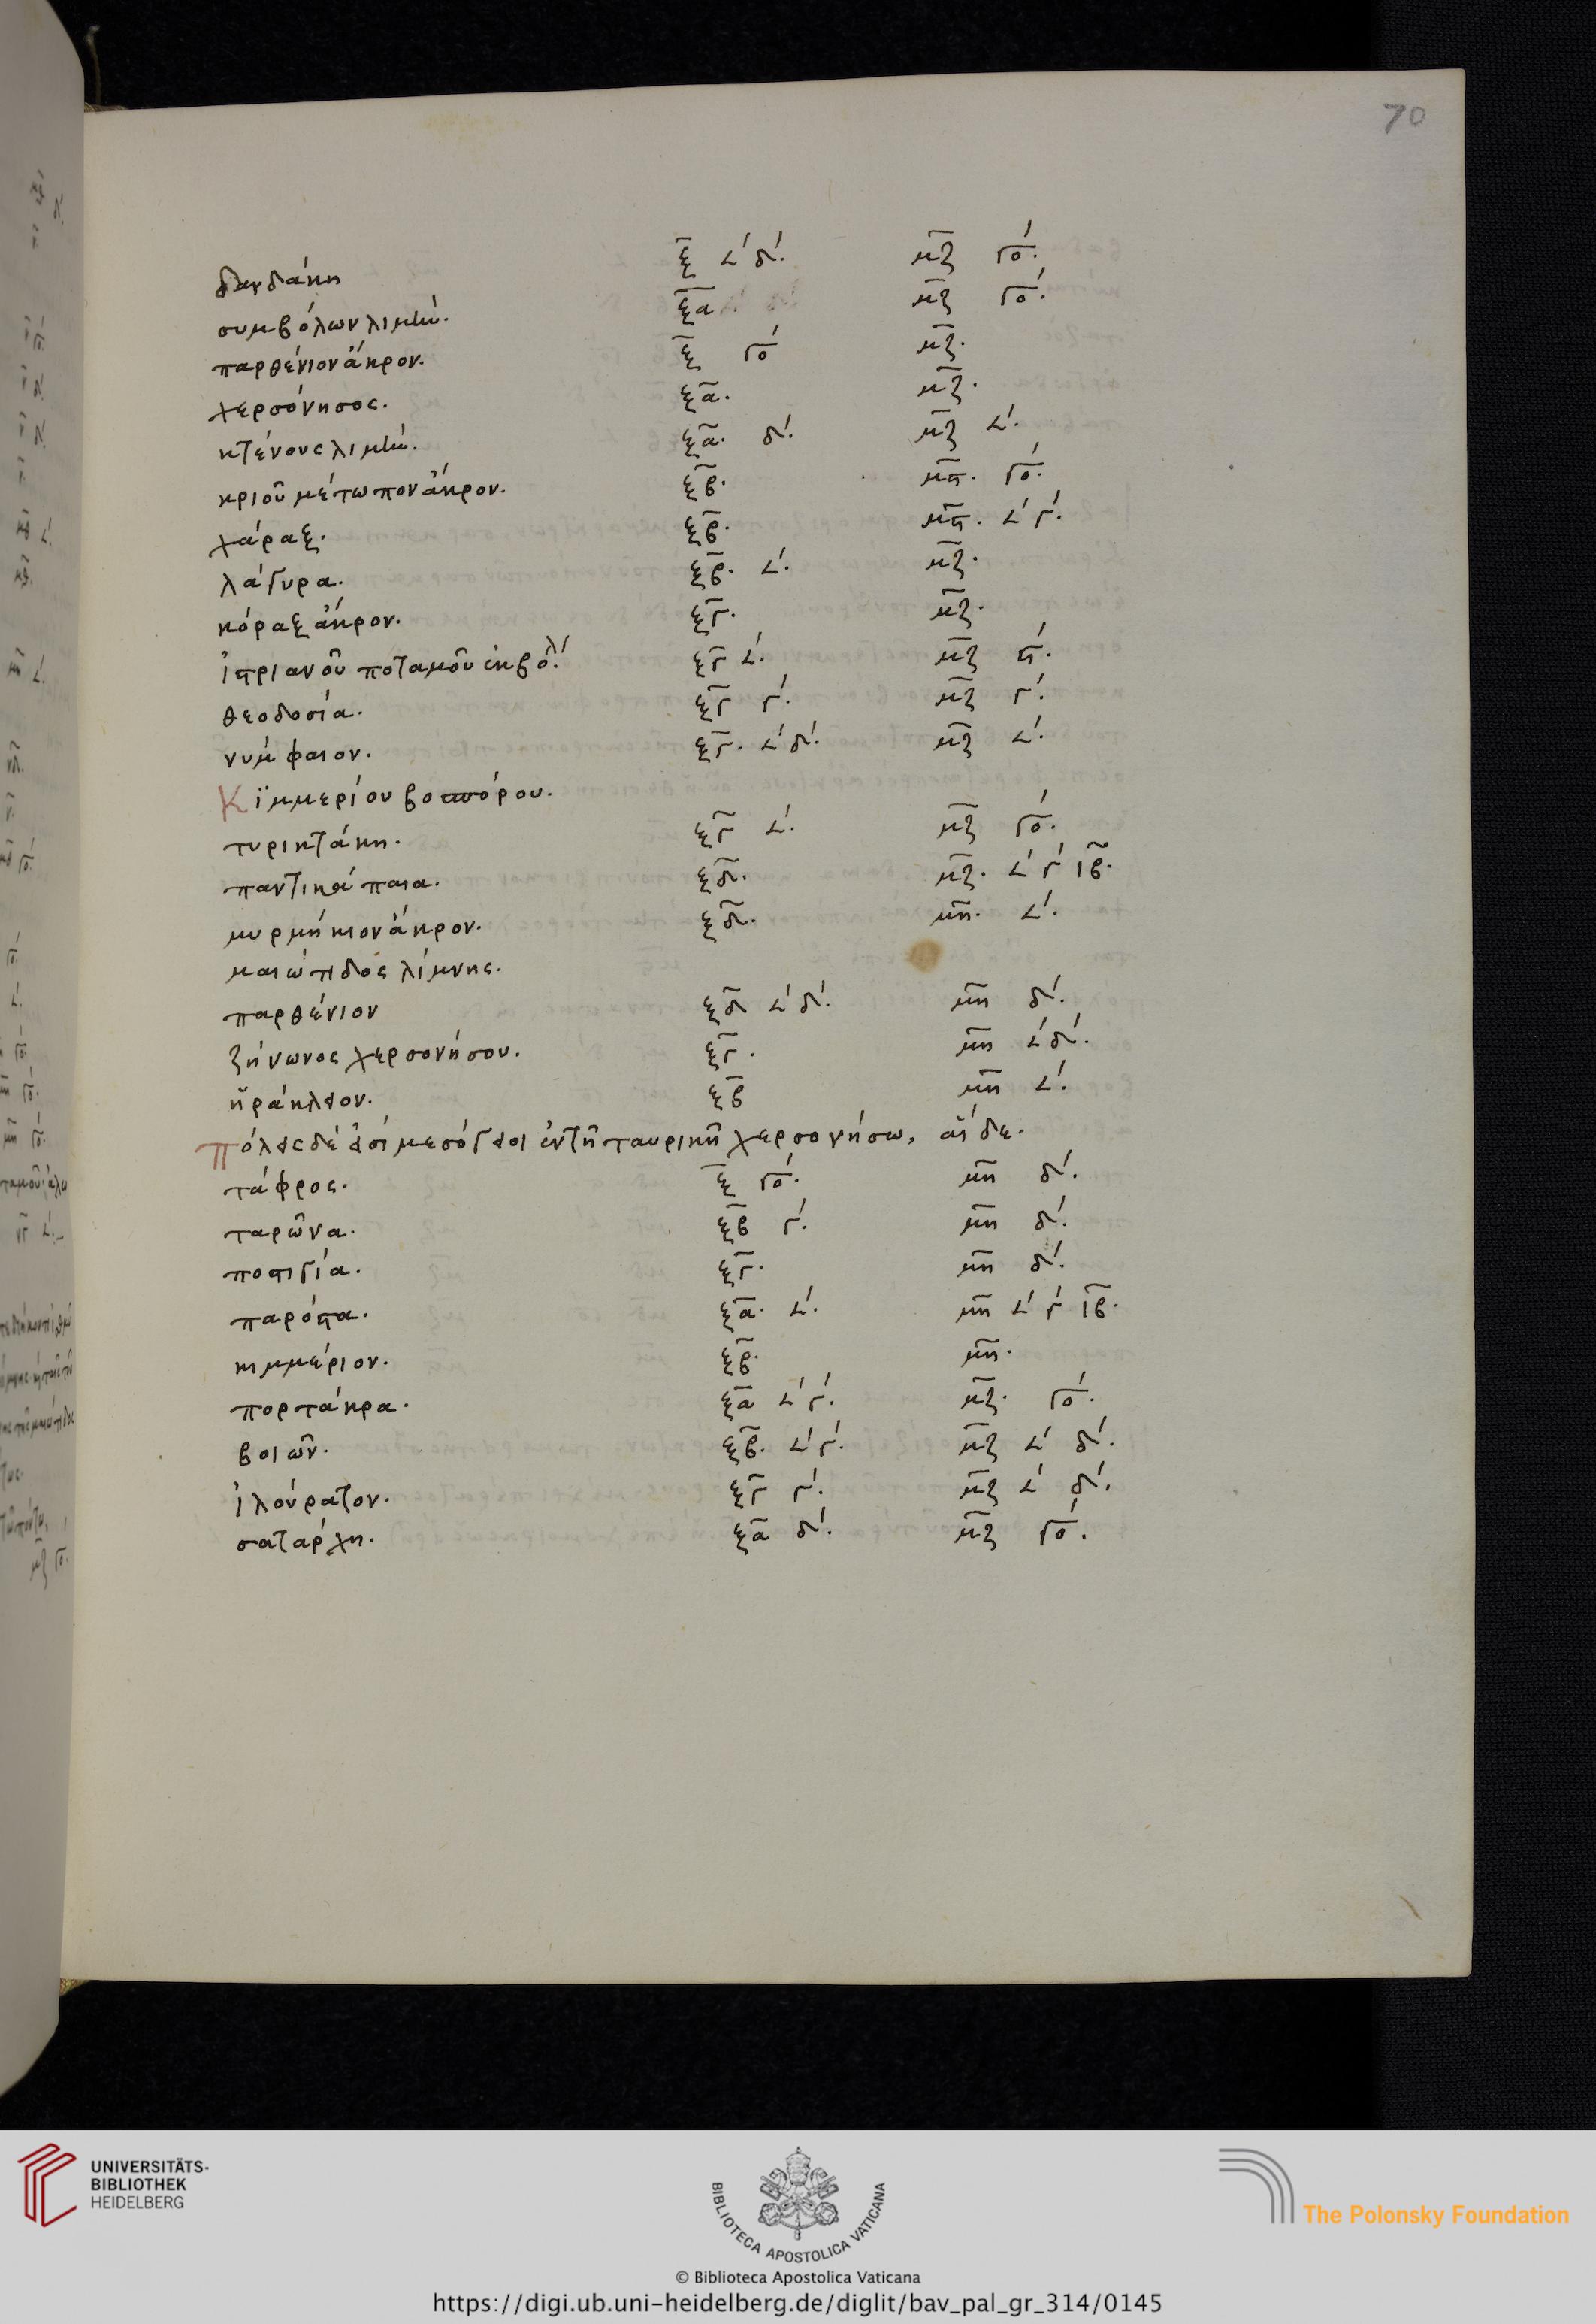 70
δανδάκη ξ ∠΄ δ΄. μζ γο΄.
συμβόλων λιμήν. ξα μζ γο΄.
παρθένιον ἄκρον. ξ γο΄ μζ.
χερσόνησος. ξα. μζ.
κτένους λιμήν. ξα. δ΄. μζ ∠΄.
κριοῦ μέτωπον ἄκρον. ξβ. μϛ. γο΄.
χάραξ. ξβ. μϛ. ∠΄ γ΄.
λάγυρα. ξβ. ∠΄. μζ.
κόραξ ἄκρον. ξγ. μζ.
ἰστριανοῦ ποταμοῦ ἐκβολ΄. ξγ ∠΄. μζ ϛ΄.
θεοδοσία. ξγ γ΄. μζ γ΄.
νύμφαιον. ξγ. ∠΄ δ΄. μζ ∠΄.
Κϊμμερίου βοσπόρου.
τυρικτάκη. ξγ ∠΄. μζ γο΄.
παντικάπαια. ξδ. μζ. ∠΄ γ΄ ιβ.
μυρμήκιον ἄκρον. ξδ. μη. ∠΄.
μαιώτιδος λίμνης.
παρθένιον ξδ ∠΄ δ΄. μη δ΄.
ζήνωνος χερσονήσου. ξγ. μη ∠΄ δ΄.
ἡράκλειον. ξβ μη ∠΄.
Πόλεις δέ εἰσί μεσόγειοι ἐν τῆ ταυρικῆ χερσονήσω, αἵδε.
τάφρος. ξ γο΄. μη δ΄.
ταρῶνα. ξβ γ΄. μη δ΄.
ποστιγία. ξγ. μη δ΄.
παρόστα. ξα. ∠΄. μη ∠΄ γ΄ ιβ.
κιμμέριον. ξβ. μη.
πορτάκρα. ξα ∠΄ γ΄. μζ. γο΄.
βοιῶν. ξβ. ∠΄ γ΄. μζ ∠΄ δ΄.
ἰλούρατον. ξγ γ΄. μζ ∠΄ δ΄.
σατάρχη. ξα δ΄. μζ γο΄.
UNIVERSITÄTS-
BIBLIOTHEK
HEIDELBERG
BIBLIOTECA APOSTOLICA VATICANA
The Polonsky Foundation
© Biblioteca Apostolica Vaticana
https://digi.ub.uni-heidelberg.de/diglit/bav_pal_gr_314/0145